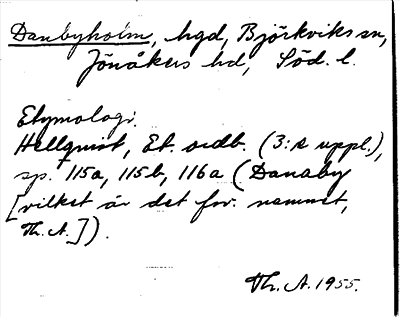 Danbyholm, hgd, Björkviks sn,
Jönåkers hd, Söd. l.
Etymologi:
Hellquist, Et. ordb. (3:e uppl.),
sp. 115a, 115b, 116a (Danaby
[vilket är det forn. namnet,
Th. A.]).
Th. A. 1955.